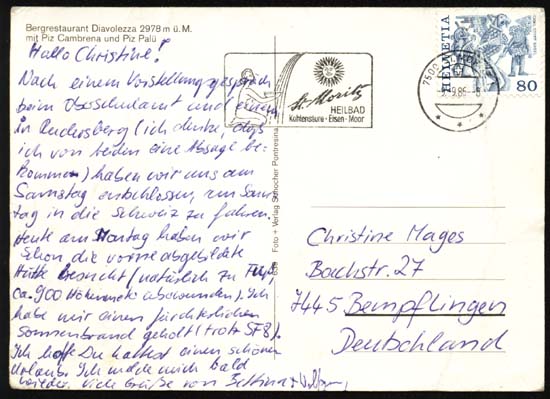 Bergrestaurant Diavolezza 2978 m ü. M.
mit Piz Cambrena und Piz Palü
Hallo Christine!
Nach einem Vorstellungsgespräch
beim Oberschulamt und einem
in Rudersberg (ich denke, daß
ich von beiden eine Absage be-
komme) haben wir uns am
Samstag entschlossen, am Sonn-
tag in die Schweiz zu fahren.
Heute am Montag haben wir
schon die vorne abgebildete
Hütte besucht (natürlich zu Fuß,
ca. 900 Höhenmeter überwunden). Ich
habe mir einen fürchterlichen
Sonnenbrand geholt (trotz SF 8).
Ich hoffe Du hattest einen schönen
Urlaub. Ich melde mich bald
wieder. Viele Grüße von Bettina + Wolfgang
Foto + Verlag Schocher Pontresina
St. Moritz
HEILBAD
Kohlensäure - Eisen - Moor
7500
HELVETIA
80
Christine Mages
Bachstr. 27
7445 Bempflingen
Deutschland